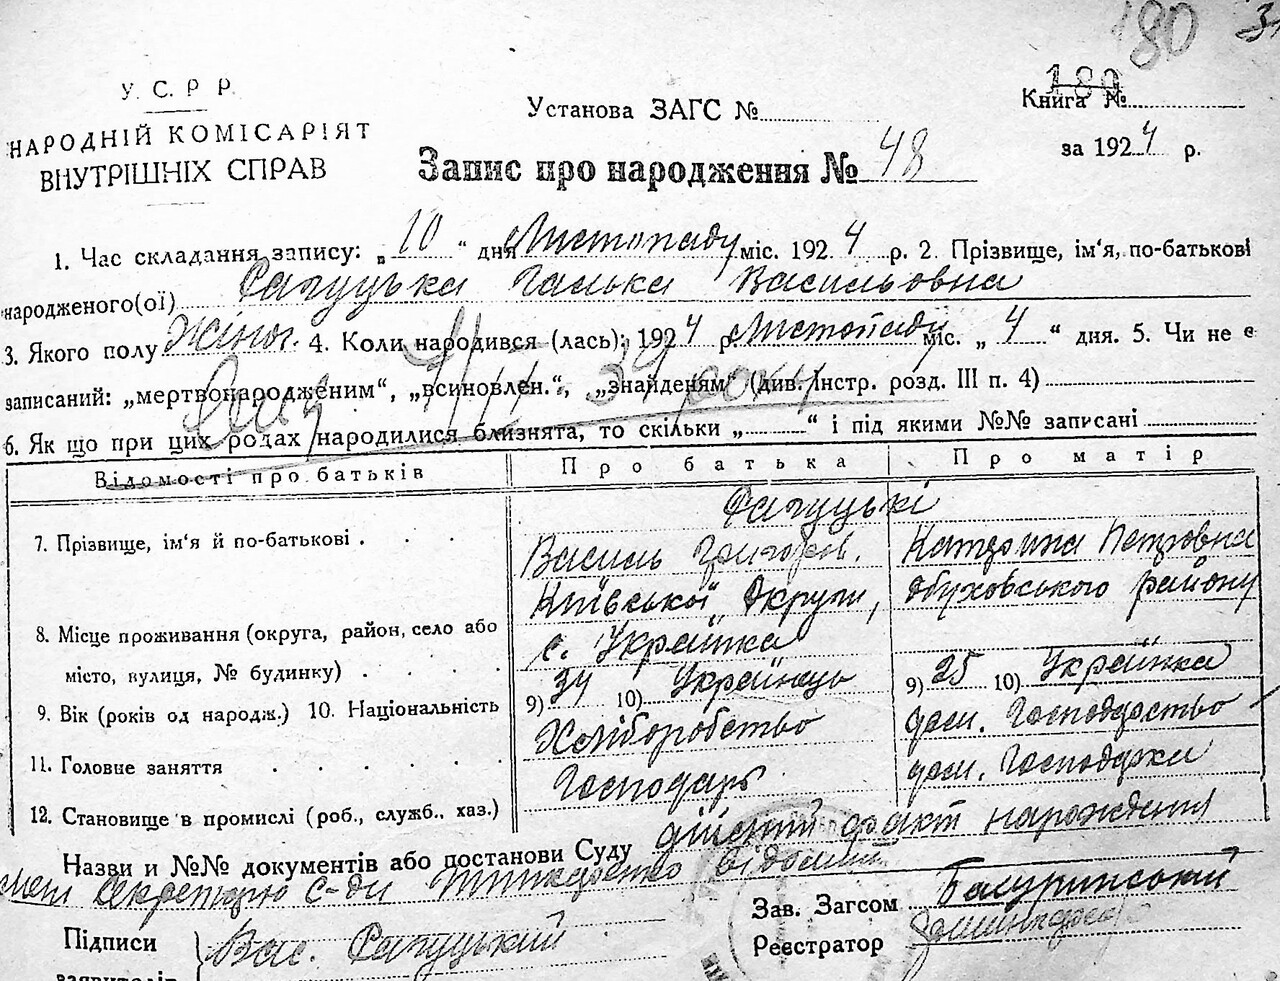 180
У. С. Р Р.
НАРОДНІЙ КОМІСАРІЯТ
ВНУТРІШНІХ СПРАВ
Установа ЗАГС №
180
Книга №
за 1924 р.
Запис про народження № 48
1. Час складання запису: „10“ дня Листопаду міс. 1924 р. 2. Прізвище, ім'я, по-батькові
народженого(ої) Рагуцька Ганька Васильовна
3. Якого полу Жіноч. 4. Коли народився (лась); 1924 р Листопаду міс. „4“ дня. 5. Чи не є
записаний: „мертвонародженим“, „всиновлен.“, „знайденям“ (див. Інстр. розд. III п. 4)
6. Як що при цих родах народилися близнята, то скільки „ “ і під якими №№ записані
Відомості про батьків Про батька Про матір
Рагуцькі
7. Прізвище, ім'я й по-батькові Василь Григоров. Катерина Петровна
Київської Округи, Обуховського району
8. Місце проживання (округа, район, село або
с. Українка
місто, вулиця, № будинку)
9. Вік (років од народж.) 10. Національність 9) 34 10) Українець 9) 25 10) Українка
11. Головне заняття Хліборобство дом. Господарство
12. Становище в промислі (роб., служб., хаз.) Господарь дом. Господарка
Назви и №№ документів або постанови Суду дійсний факт народження
Секретарю с-ди відомий
Зав. Загсом
Підписи Вас. Рагуцький
Реєстратор
заявителів